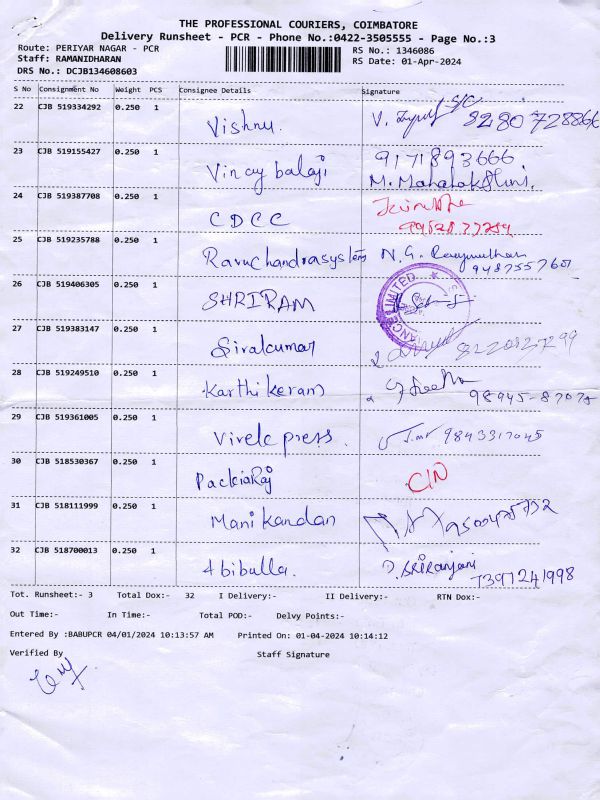 THE PROFESSIONAL COURIERS, COIMBATORE
Delivery Runsheet - PCR - Phone No.:0422-3505555 - Page No.:3
Route: PERIYAR NAGAR - PCR RS No.: 1346086
Staff: RAMANIDHARAN RS Date: 01-Apr-2024
DRS No.: DCJB134608603
S No Consignment No Weight PCS Consignee Details Signature
22 CJB 519334292 0.250 1 Vishnu.
23 CJB 519155427 0.250 1 Vinay balaji 9171893666
M. Mahalakshmi.
24 CJB 519387708 0.250 1 CDCC
25 CJB 519235788 0.250 1 Ramchandrasystems N.G.
26 CJB 519406305 0.250 1 SHRIRAM
27 CJB 519383147 0.250 1 Sivakumar
28 CJB 519249510 0.250 1 Karthikeran
29 CJB 519361005 0.250 1 Vivek press. 9843317045
30 CJB 518530367 0.250 1 PackiaRaj
31 CJB 518111999 0.250 1 Manikandan
32 CJB 518700013 0.250 1 Abibulla. D. SRIRanjani
7397241998
Tot. Runsheet:- 3 Total Dox:- 32 I Delivery:- II Delivery:- RTN Dox:-
Out Time:- In Time:- Total POD:- Delvy Points:-
Entered By :BABUPCR 04/01/2024 10:13:57 AM Printed On: 01-04-2024 10:14:12
Verified By Staff Signature